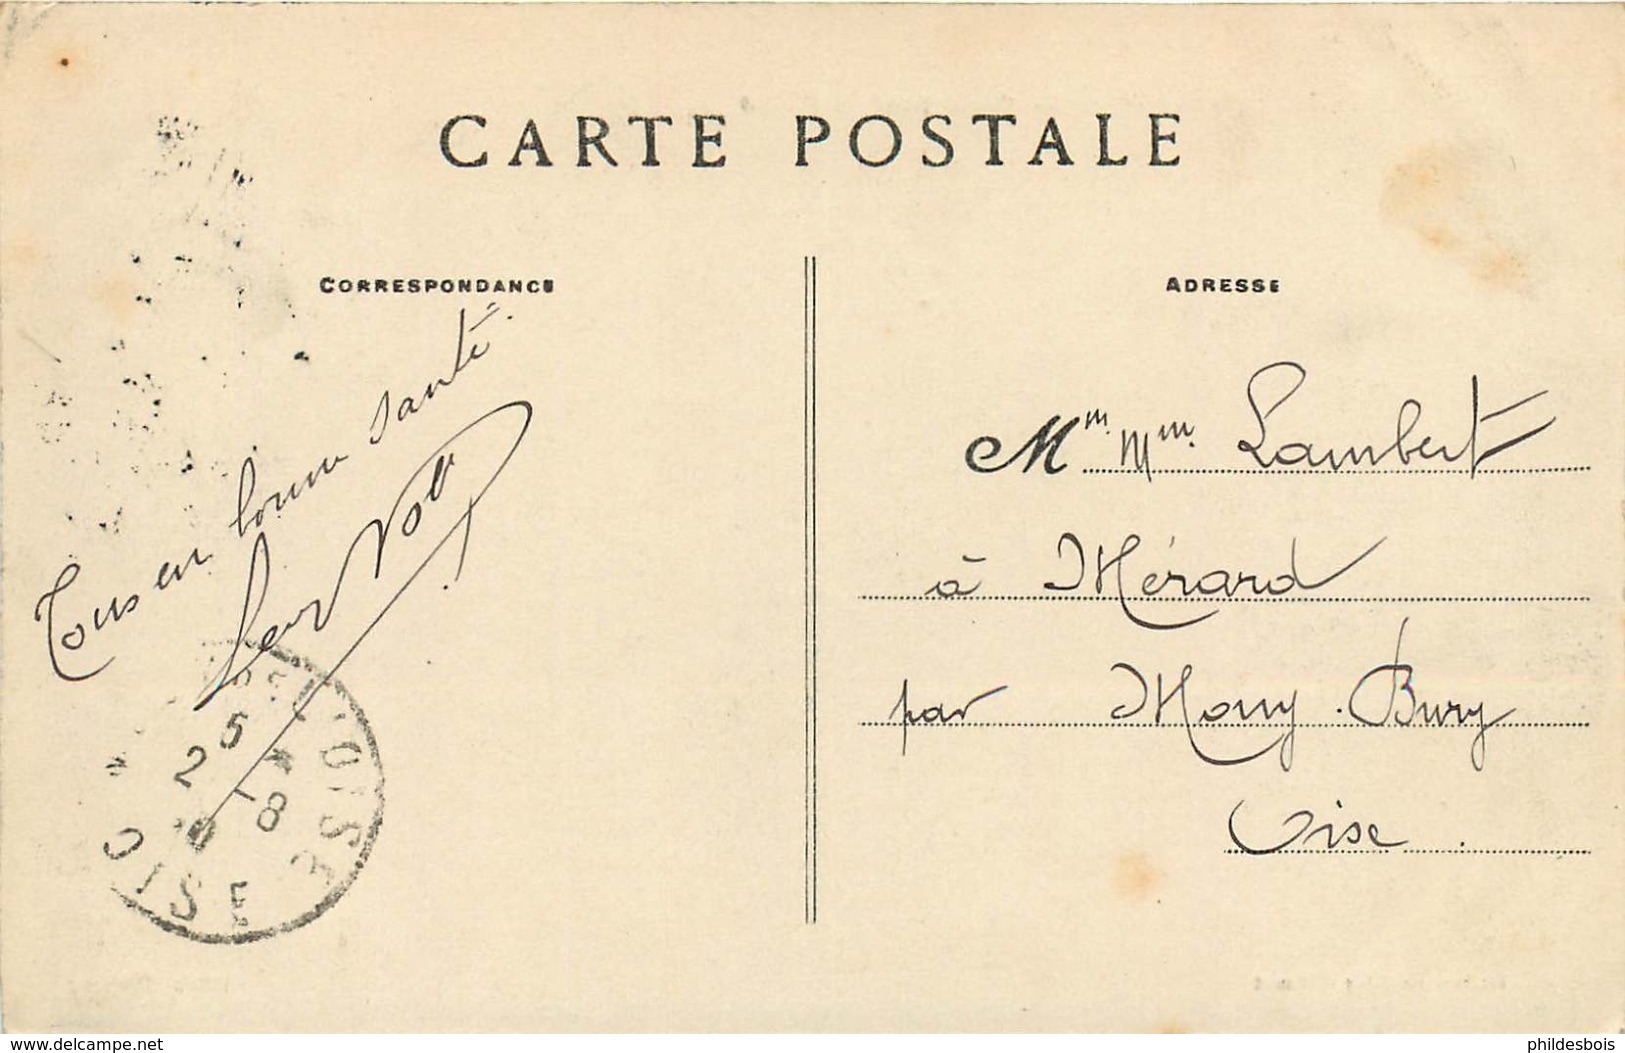 CARTE POSTALE
CORRESPONDANCE
Tous en bonne santé
ADRESSE
Mm. Mm. Lambert
à Mérard
par Mouy. Bury
Oise.
5
2 -8
OISE
OISE
www.delcampe.net
phildesbois